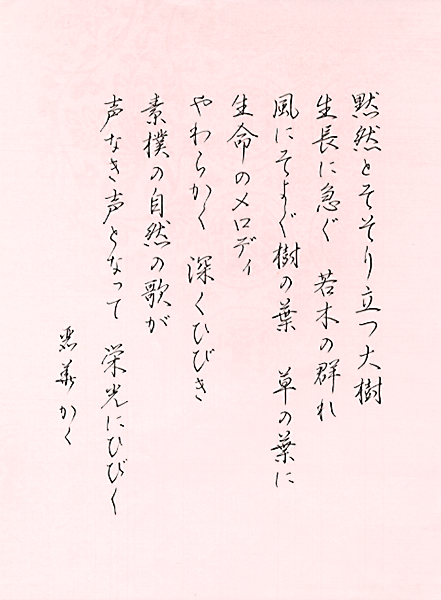 黙然とそそり立つ大樹
生長に急ぐ 若木の群れ
風にそよぐ樹の葉 草の葉に
生命のメロディ
やわらかく 深くひびき
素朴の自然の歌が
声なき声となって 栄光にひびく
かく